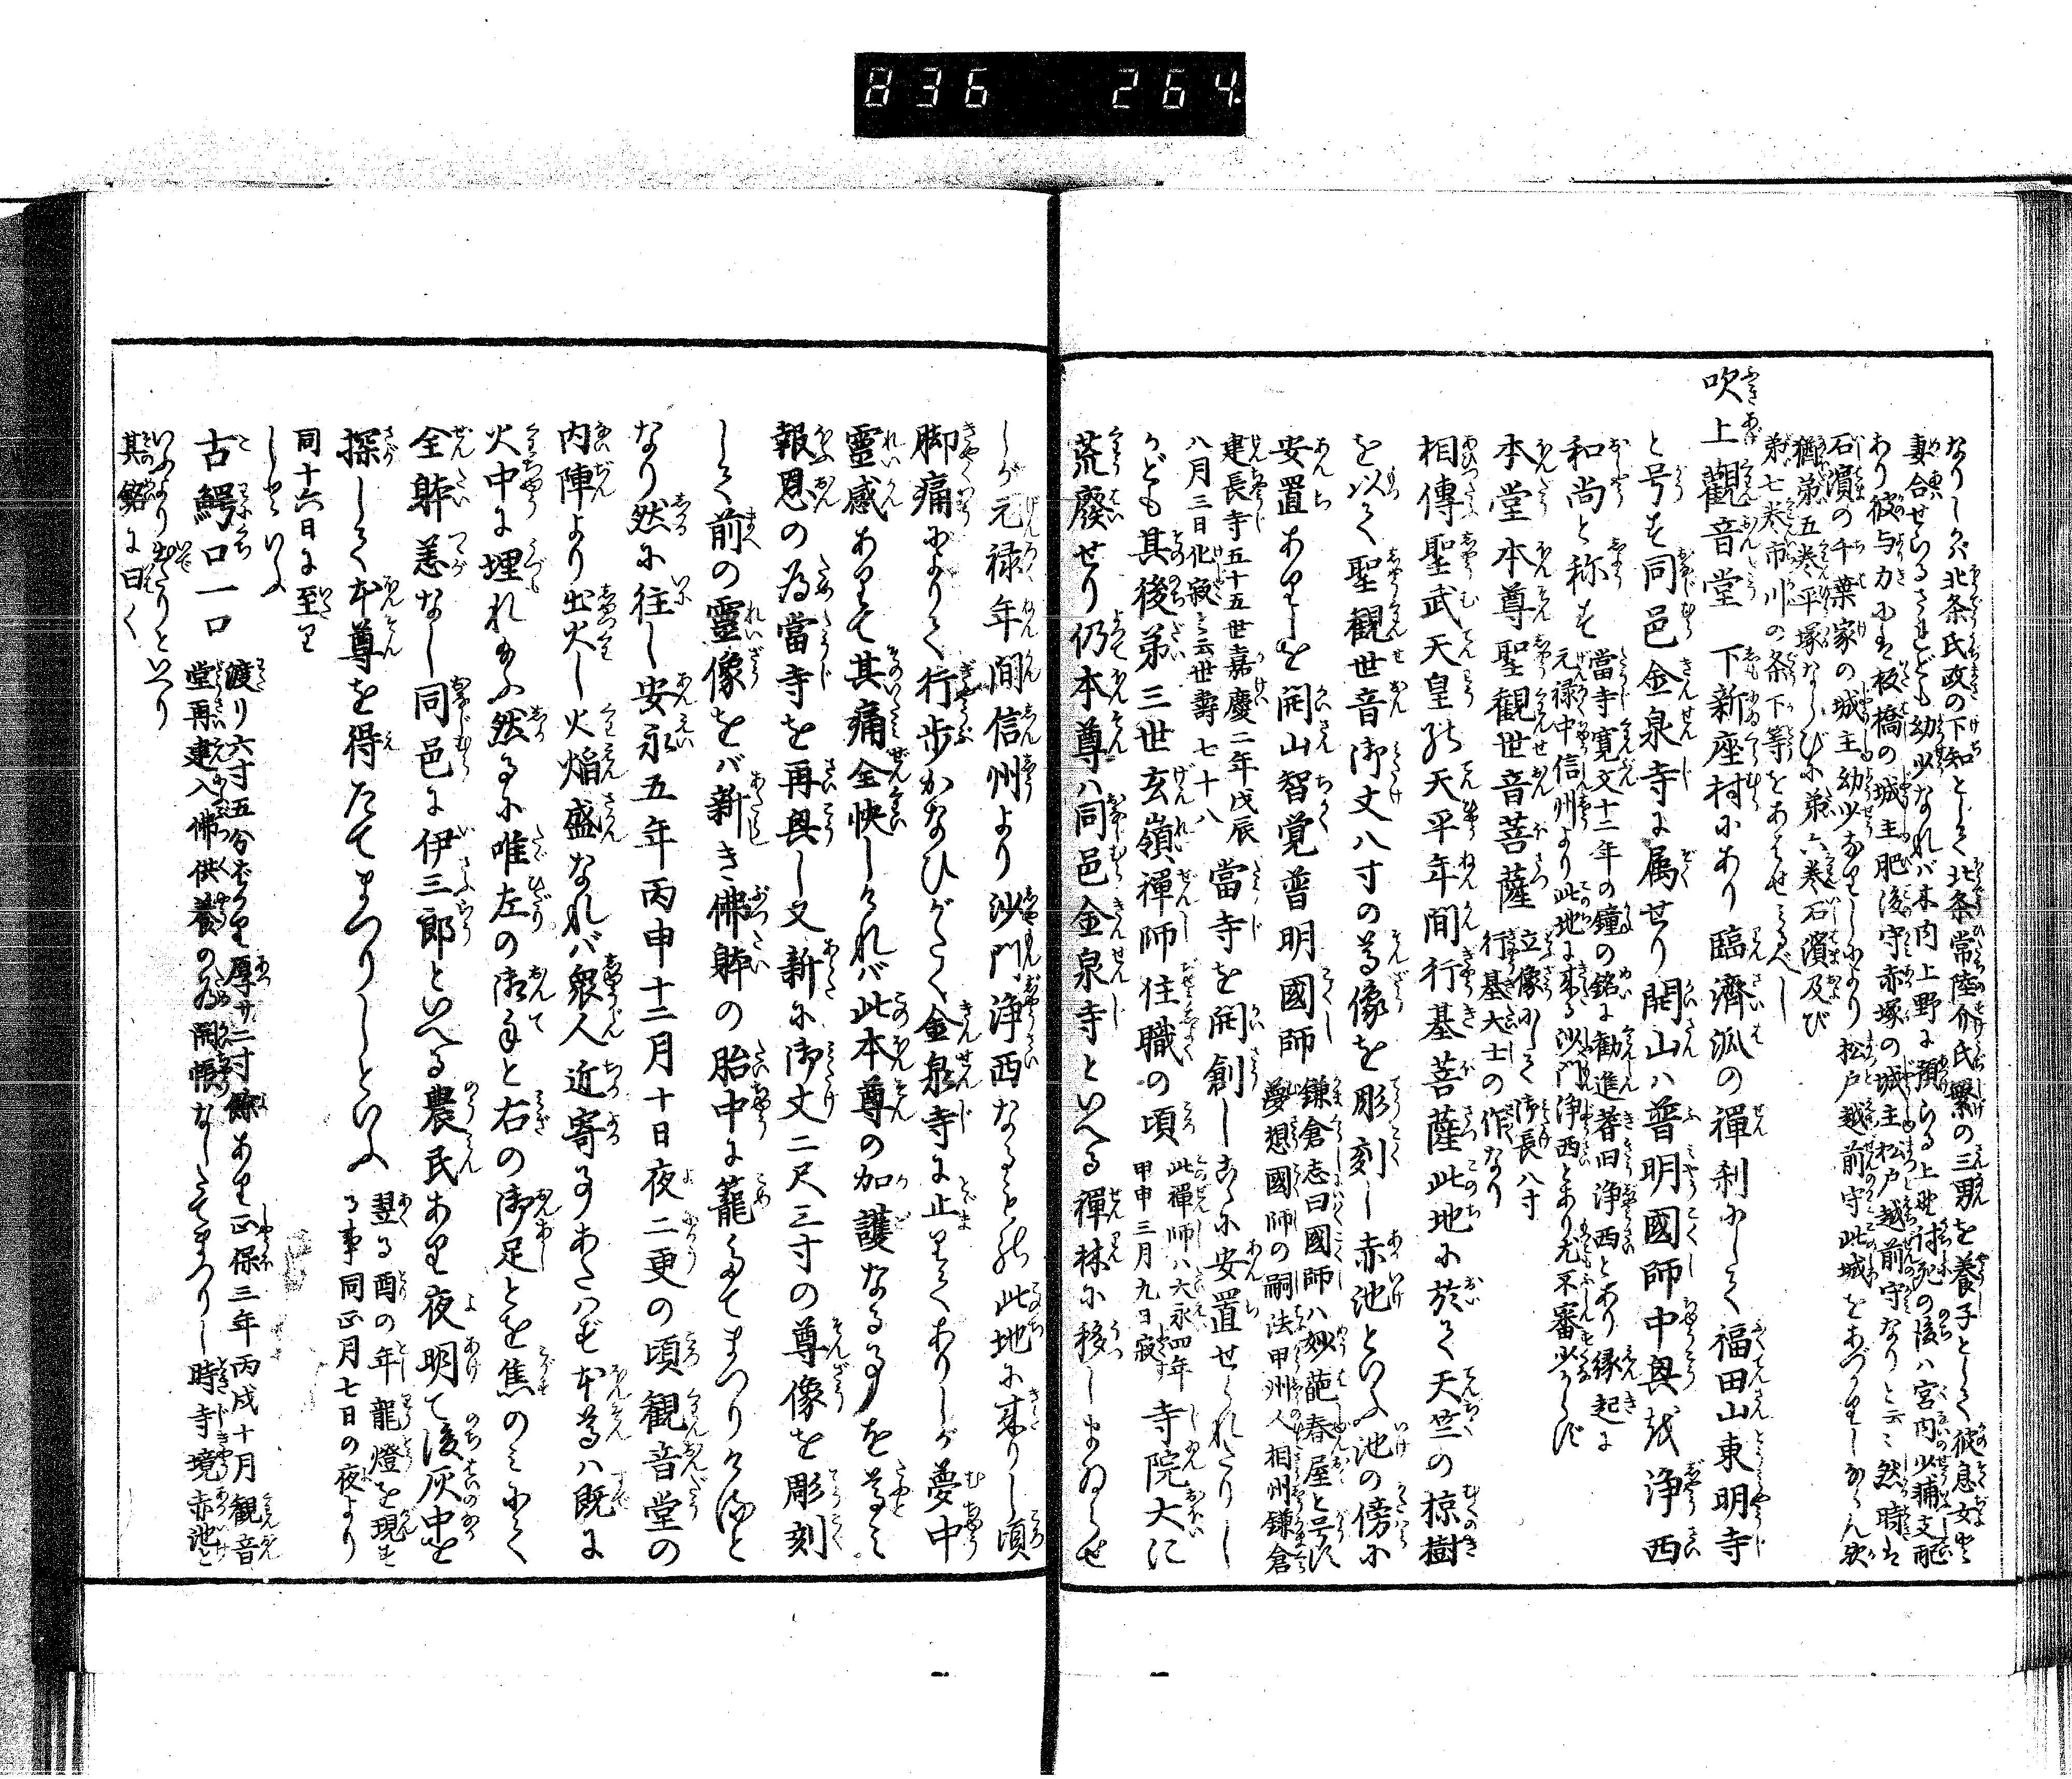 836 264
なりしかば北条氏政の下知として北条常陸介氏繁の三男を養子として彼息女と
妻合せらるされども幼少なれバ木内上野に預らる上野討死の後ハ宮内少輔支配
あり彼与力には板橋の城主肥後守赤塚の城主松戸越前守なりと云云然時は
石濱の千葉家の城主幼少なりしにより松戸越前守此城をあづかりしならん歟
猶第五巻平塚ならびに第六巻石濱及び
第七巻市川の条下等をあはせみるべし
吹上觀音堂 下新座村にあり臨濟派の禪刹にして福田山東明寺
と号す同邑金泉寺に属せり開山ハ普明國師中興を浄西
和尚と称す 當寺寛文十二年の鐘の銘に勧進者旧浄西とあり縁起に
元禄中信州より此地に来る沙門浄西とあり尤不審少からず
本堂本尊聖観世音菩薩 立像にして御長八寸
行基大士の作なり
相傳聖武天皇の天平年間行基菩薩此地に於て天竺の椋樹
を以て聖観世音御丈八寸の尊像を彫刻し赤池といふ池の傍に
安置ありしを開山智覚普明國師 鎌倉志曰國師ハ妙葩春屋と号す
夢想國師の嗣法甲州人相州鎌倉
建長寺五十五世嘉慶二年戊辰
八月三日化寂と云世壽七十八 當寺を開創しこゝに安置せられたりし
かども其後第三世玄嶺禪師住職の頃 此禪師ハ六永四年
甲申三月九日寂 寺院大に
荒廢せり仍本尊ハ同邑金泉寺といへる禪林に移しまゐらせ
しが元禄年間信州より沙門浄西なるもの此地に来りし頃
脚痛によりて行歩かなひがたく金泉寺に止りてありしが夢中
靈感ありて其痛全快しけれバ此本尊の加護なる事を尊み
報恩の為當寺を再興し又新に御丈二尺三寸の尊像を彫刻
して前の靈像をバ新き佛躰の胎中に籠たてまつりけると
なり然に往し安永五年丙申十二月十日夜二更の頃観音堂の
内陣より出火し火焔盛なれバ衆人近寄事あたハず本尊ハ既に
火中に埋れ給ふ然るに唯左の御手と右の御足とを焦のミにて
全躰恙なし同邑に伊三郎といへる農民あり夜明て後灰中を
探して本尊を得たてまつりしといふ 翌る酉の年龍燈を現す
る事同正月七日の夜より
同十六日に至り
しといふ
古鰐口一口 渡り六寸五分ばかり厚サ二寸餘あり正保三年丙戌十月観音
堂再建入佛供養の為開帳なしたてまつりし時寺境赤池と
いふより出たりといへり
其銘に曰く